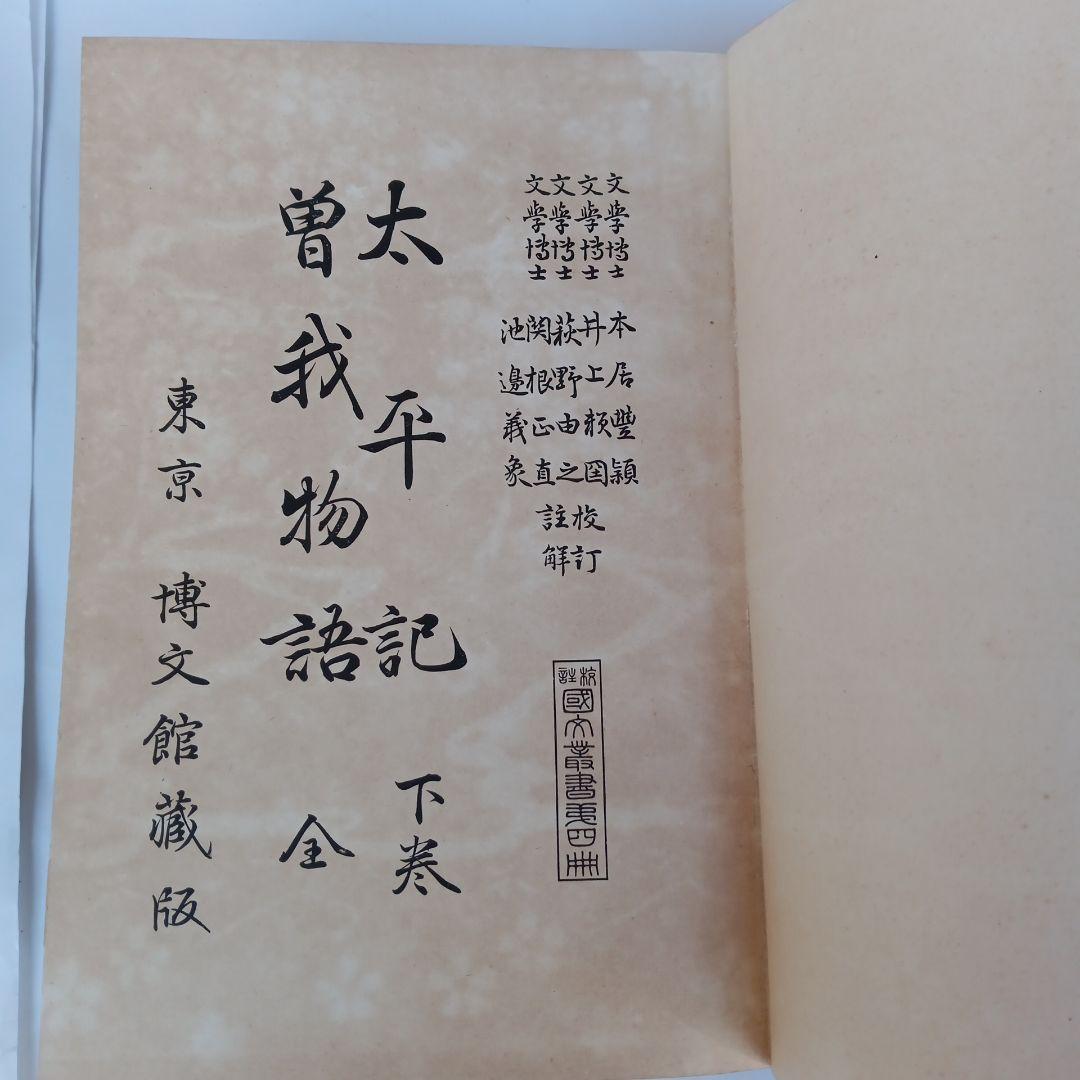 文学博士 本居豐穎
文学博士 井上頼圀
文学博士 萩野由之
文学博士 関根正直
池邊義象
校訂
註解
校註
國文叢書第四冊
太平記 下巻
曽我物語 全
東京 博文館藏版